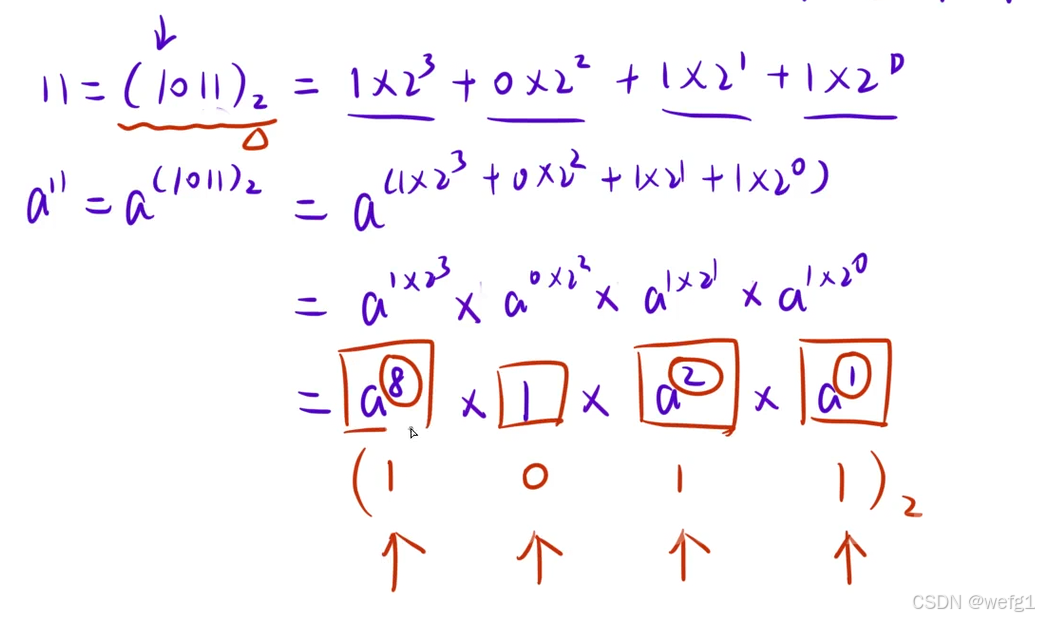 11 = (1011)₂ = 1×2³ + 0×2² + 1×2¹ + 1×2⁰
a¹¹ = a^(1011)₂ = a^(1×2³ + 0×2² + 1×2¹ + 1×2⁰)
= a^1×2³ × a^0×2² × a^1×2¹ × a^1×2⁰
= a⁸ × 1 × a² × a¹
(1 0 1 1)₂
CSDN @wefg1